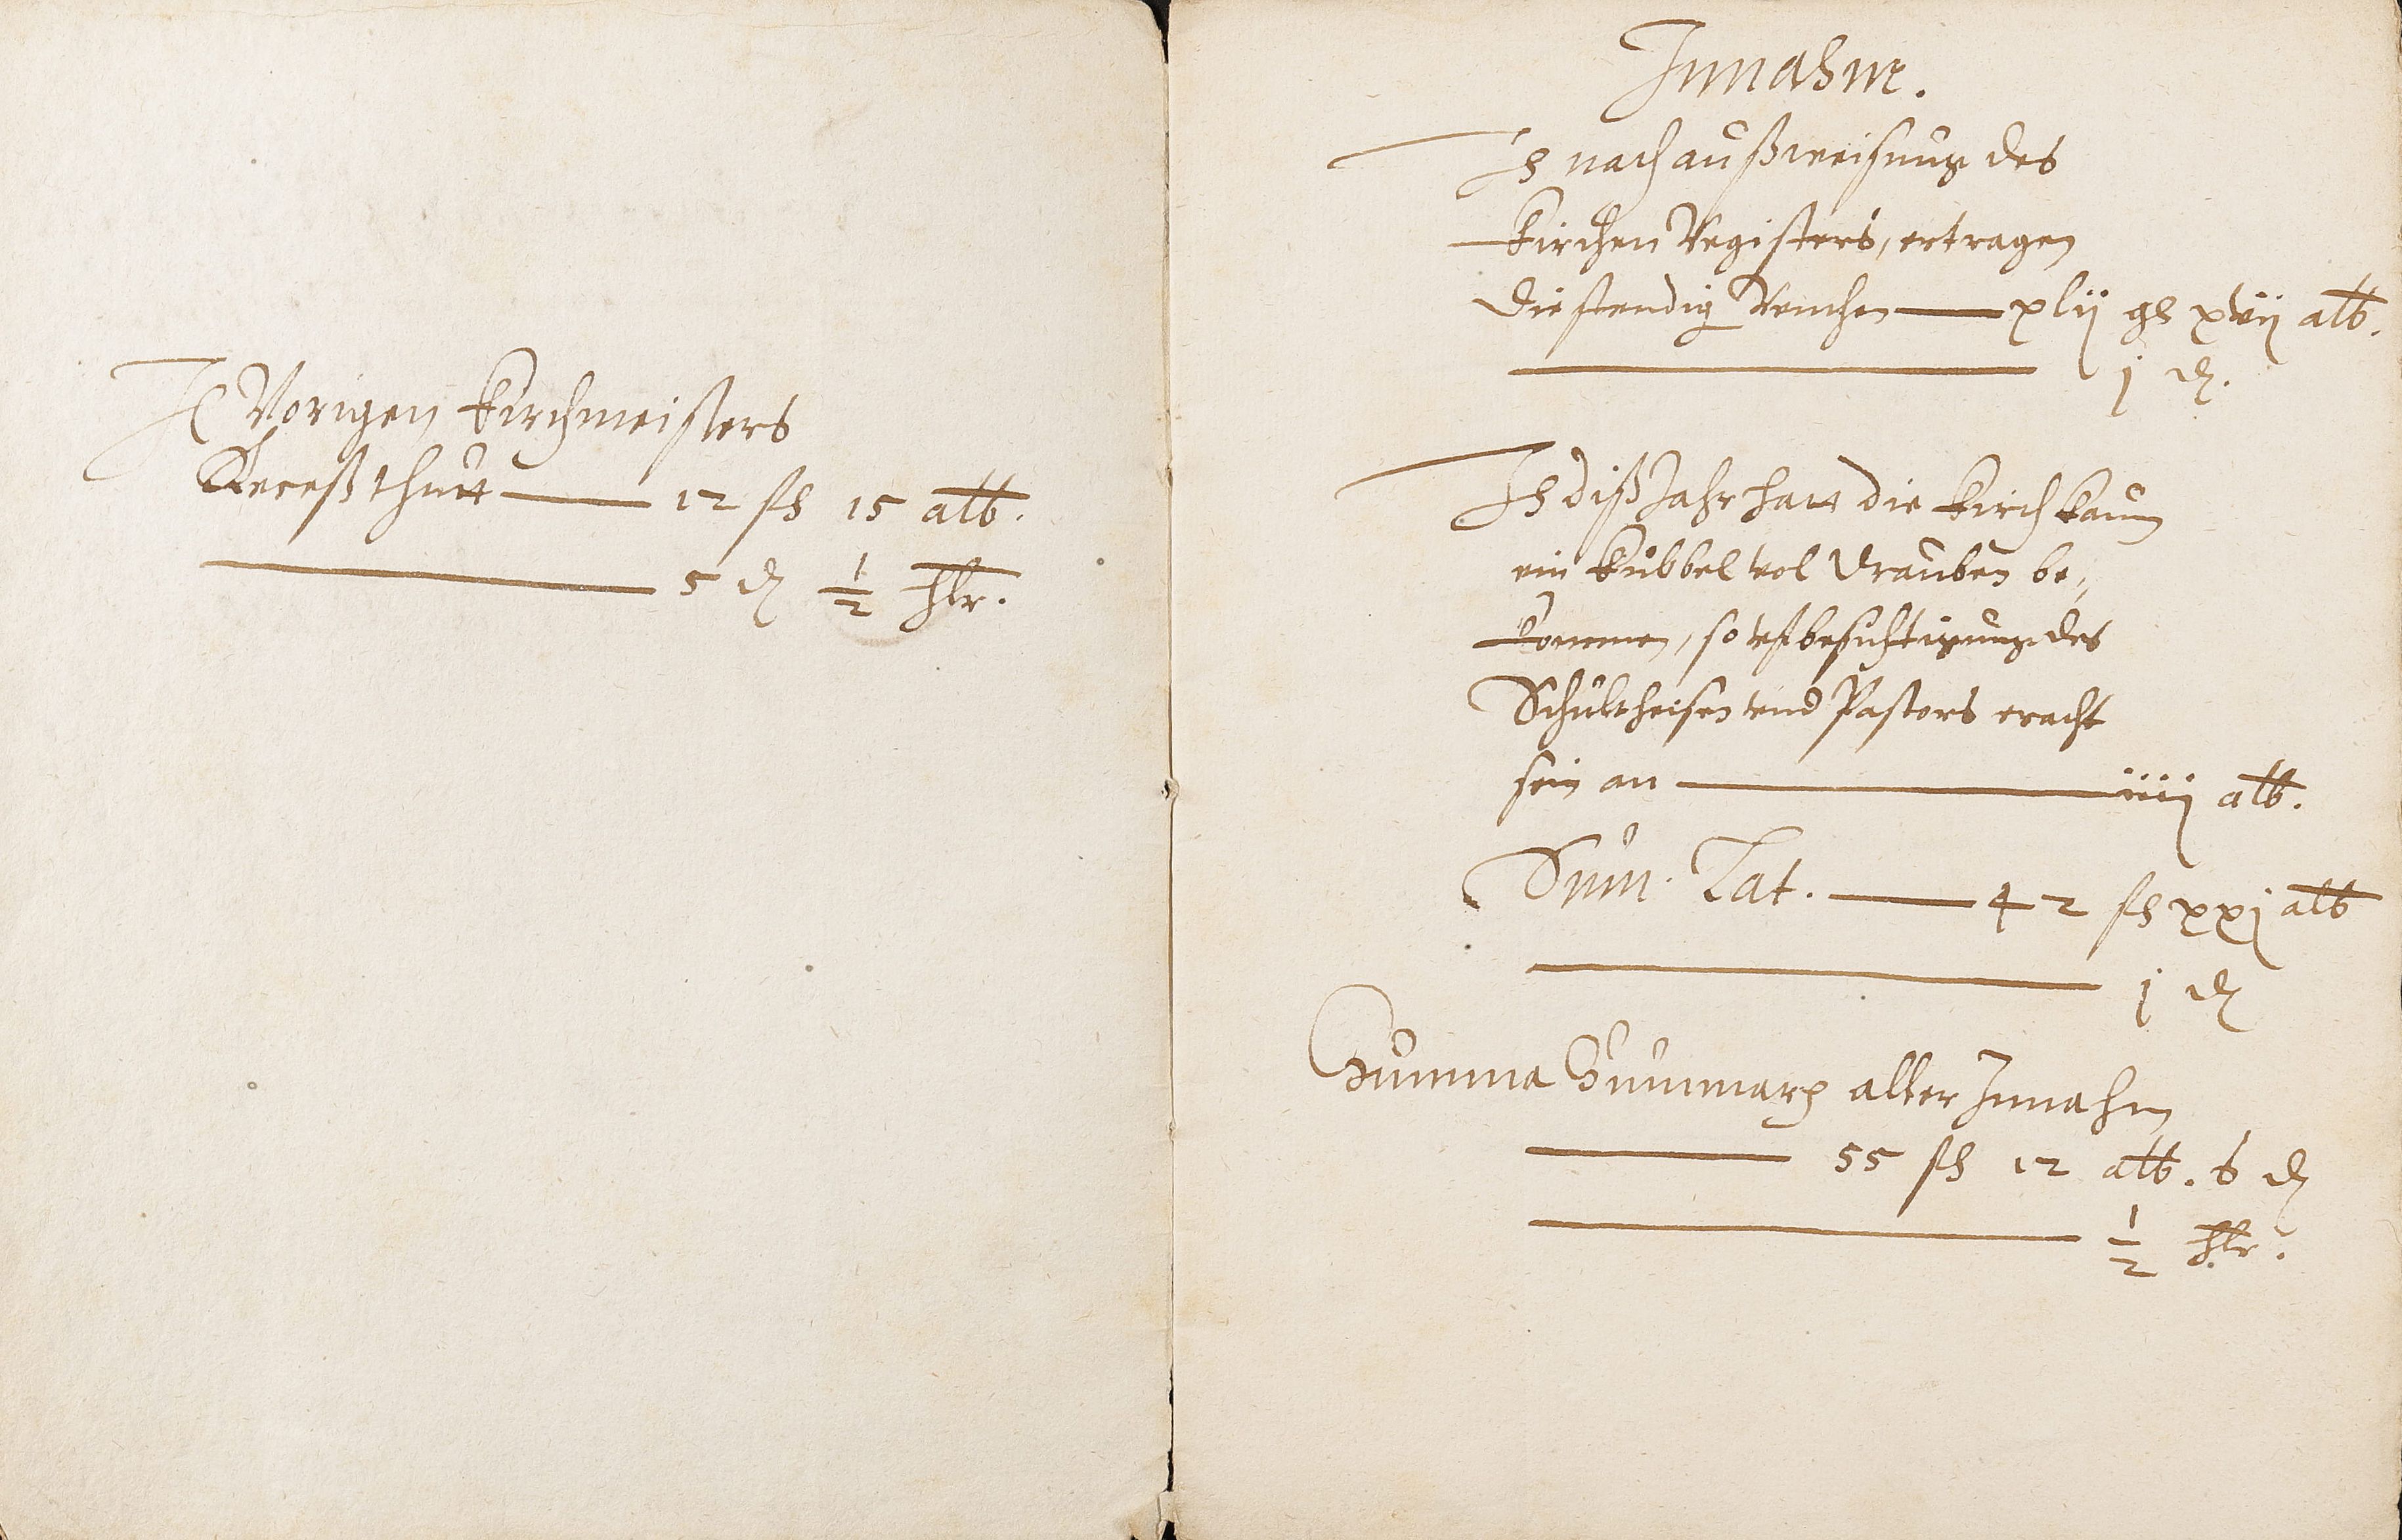 It Vorigen Kirchmeisters
Receß thutt — 12 fl 15 alb.
— 5 ₰ ½ hlr.
Innahm.
It nach außweisung des
Kirchen Registers, ertragen
die stendig Renthen — xlij gl xvij alb.
— j ₰.
It diß Jahr hatt die Kirch kaum
ein Kübbel vol Drauben be„
kommen, so vf besichtigung des
Schultheisen vnd Pastors eracht
sein an — iiij alb.
Sum. Lat. — 42 fl xxj alb
— j ₰
Summa Summarum aller Innahm
— 55 fl 12 alb. 6 ₰
— ½ hlr.